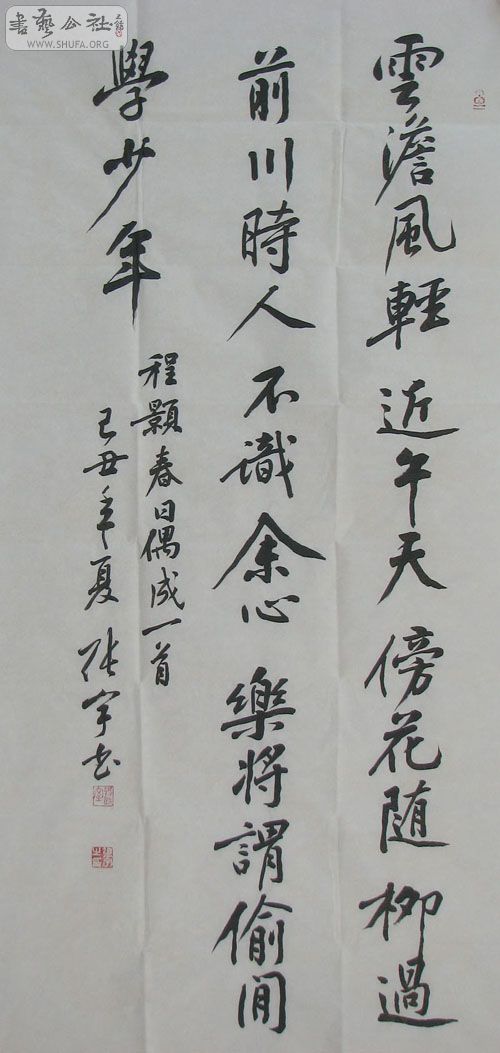 雲澹風輕近午天傍花随柳過
前川時人不識余心樂將謂偷閒
學少年
程顥春日偶成一首
己丑年夏張宇書
書藝公社
WWW.SHUFA.ORG